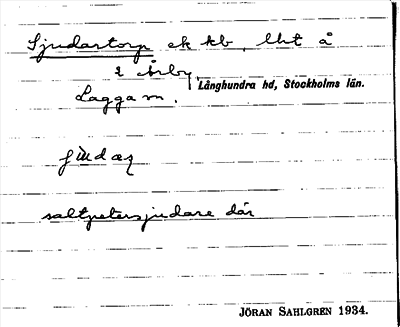 Sjudartorp ek kb, lht å
2 Årby,
Långhundra hd, Stockholms län.
Lagga sn,
saltpetersjudare där
JÖRAN SAHLGREN 1934.